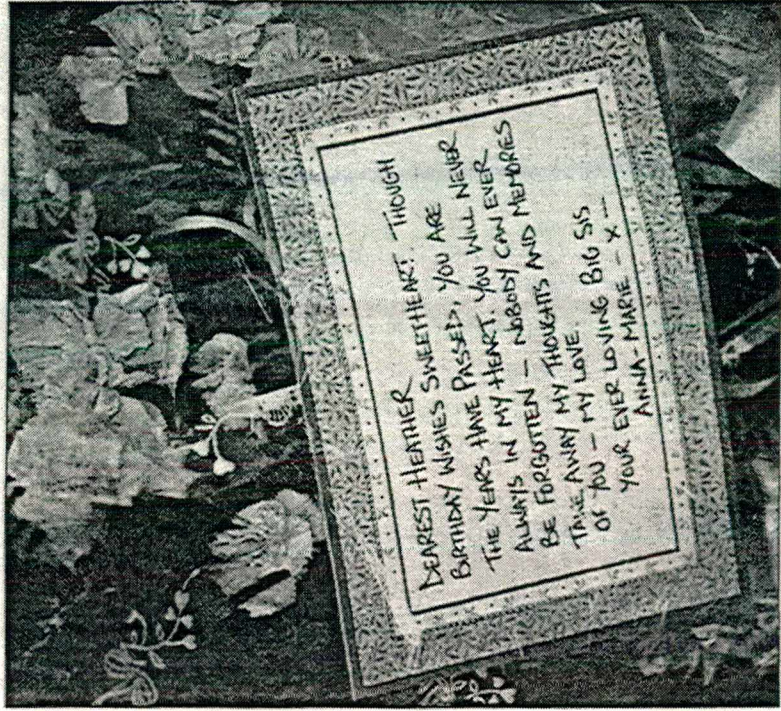 DEAREST HEATHER
BIRTHDAY WISHES SWEETHEART. THOUGH
THE YEARS HAVE PASSED, YOU ARE
ALWAYS IN MY HEART. YOU WILL NEVER
BE FORGOTTEN – NOBODY CAN EVER
TAKE AWAY MY THOUGHTS AND MEMORIES
OF YOU – MY LOVE.
YOUR EVER LOVING BIG SIS
ANNA-MARIE – X –